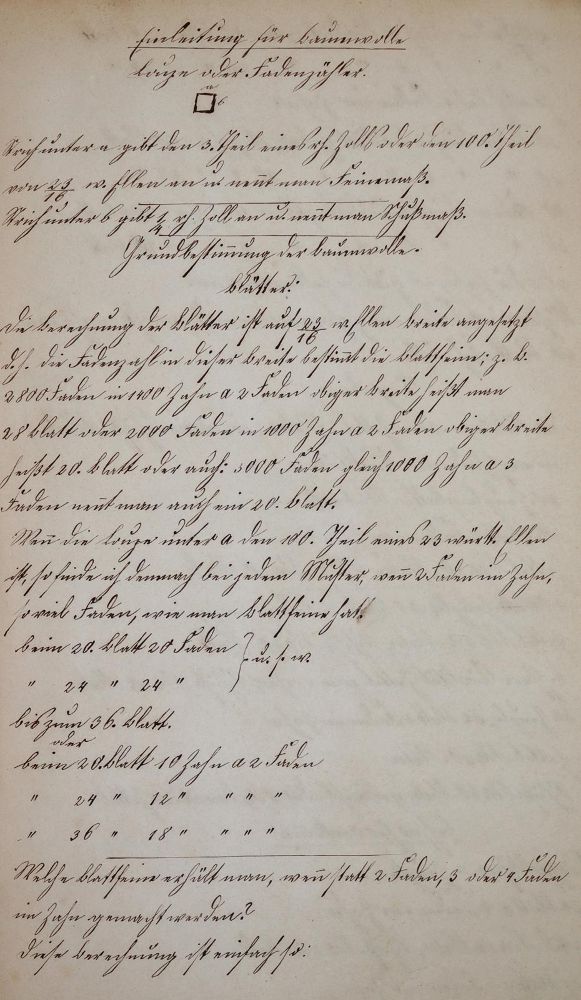 Einleitung für Baumwolle
Loupe oder Fadenzähler.
a
b
Strich unter a gibt den 3. Theil eines rh. Zolls oder den 100. Theil
von 23/16 w. Ellen an u. nen̄t man Feinemaß.
Strich unter b gibt 1/4 rh. Zoll an u. nen̄t man Schußmaß.
Grundbestim̄ung der Baumwolle-
Blätter:
Die Berechnung der Blätter ist auf 23/16 w. Ellen Breite angesetzt
d. h. die Fadenzahl in dieser Breite bestim̄t die Blattfeine; z. B.
2800 Faden in 1400 Zahn a 2 Faden obiger Breite heißt man
28 Blatt oder 2000 Faden in 1000 Zahn a 2 Faden obiger Breite
heißt 20. Blatt oder auch: 3000 Faden gleich 1000 Zahn a 3
Faden nen̄t man auch ein 20. Blatt.
Wen̄ die Loupe unter a den 100. Theil eines 23 württ. Ellen
ist, so finde ich demnach bei jedem Muster, wen̄ 2 Faden im Zahn,
so viel Faden, wie man Blattfeine hat.
beim 20. Blatt 20 Faden } u. s. w.
" 24 " 24 "
bis zum 36. Blatt.
oder
beim 20. Blatt 10 Zahn a 2 Faden
" 24 " 12 " " " "
" 36 " 18 " " " "
Welche Blattfeine erhält man, wen̄ statt 2 Faden, 3 oder 4 Faden
im Zahn gemacht werden?
Diese Berechnung ist einfach so: